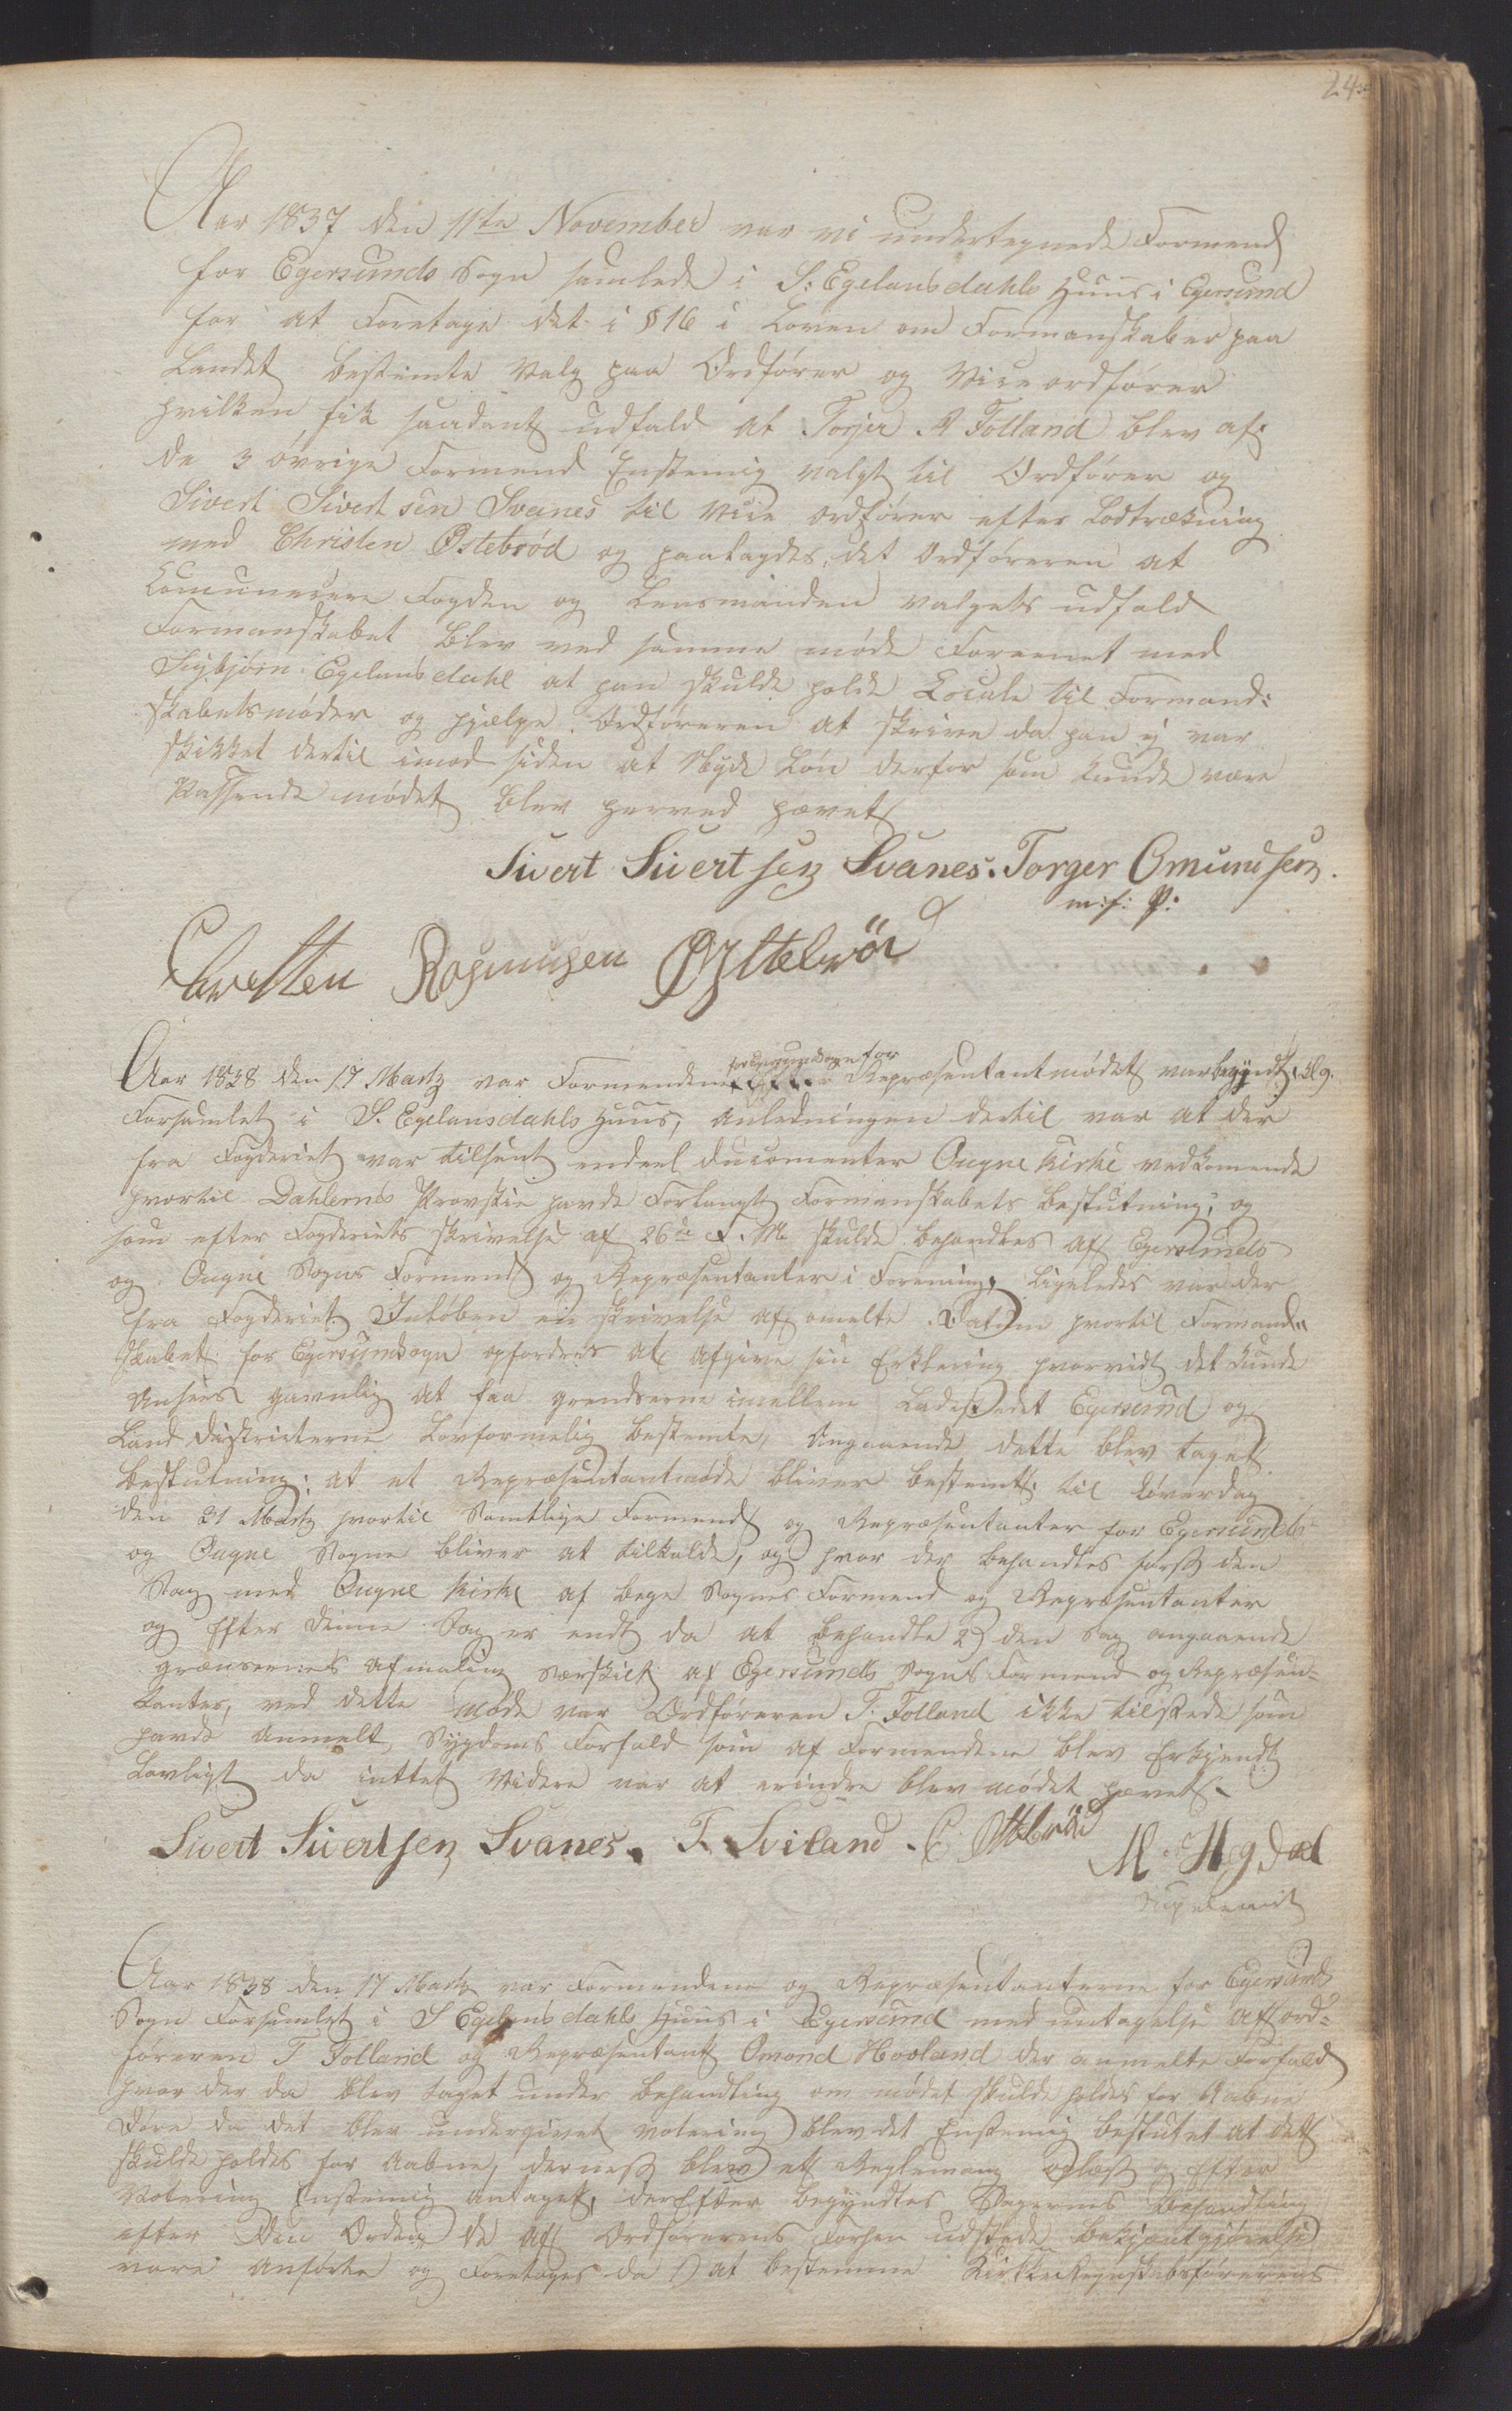 24
Aar 1837 den 11te November var vi undertegnede Formænd
for Egersunds Sogn samlede i S: Egelandsdahls Huus i Egersund
for at Foretage det i § 16 i Loven om Formandskaber paa
Landet bestemte Valg paa Ordfører og Viceordfører
hvilken fik saadant udfald at Torjer A Folland blev af
de 3 øvrige Formænd Enstemig valgt til Ordfører og
Sivert Sivertsen Svanes til Vice ordfører efter Lodtrækning
med Christen Østebrød og paatagdes det Ordføreren at
Comunicere Fogden og Lensmanden valgets udfald
Formanskabet blev ved samme møde Foreenet med
Sigbjørn Egelandsdahl at han skulde holde Locale til Formand-
skabetsmøder og hjælpe Ordføreren at skrive da han ej var
skikket dertil imod siden at Nyde Løn derfor som kunde være
Passende mødet blev herved hævet
Sivert Sivertsen Svanes. Torger Omundsen.
m: f: P:
Carsten Rasmusen Østebrød
for Egersundsogn for
Aar 1838 den 17 Martz var Formendene Repræsentantmødet var begyndt Kl 9.
Forsamlet i S. Egelansdahls Huus, anledningen dertil var at der
fra Fogderiet var tilsent endeel ducomenter Ougne Kirke vedkomende
hvortil Dahlernes Provstie havde Forlangt Formanskabets beslutning, og
som efter Fogderiets skrivelse af 26de F. M. skulde behandles af Egersunds
og Ougne Sogns Formend og Repræsentanter i Forening, ligeledes var der
fra Fogderiet Indløben en skrivelse af omelte Datum hvortil Formand-
skabet for Egersundsogn opfordres at afgive sin Erklering hvorvidt det kunde
Ansees gavnlig at faa grendserne imellem Ladestedet Egersund og
Land Districterne Lovformelig bestemte, Angaaende dette blev taget
beslutning: at et Repræsentantmøde bliver bestemt til Løverdag
den 31 Martz hvortil Samtlige Formend og Repræsentanter for Egersunds
og Ougne Sogne bliver at tilkalde, og hvor der behandles først den
Sag med Ougne Kirke af bege Sognes Formend og Repræsentanter
og Efter denne Sag er endt da at behandle 2) den Sag angaaende
grænsernes afmaaling særskilt af Egersunds Sogns Formend og Repræsen-
tanter, ved dette møde var Ordføreren T. Folland ikke tilstede som
havde Anmelt Sygdoms Forfald som af Formendene blev Erkjendt
Lovligt da inttet Videre var at erindre blev mødet hævet.
Sivert Sivertsen Svanes. T. Sviland. C Østebrød M. Hegdal
Suplemit
Aar 1838 den 17 Martz var Formendene og Repræsentanterne for Egersund
Sogn Forsamlet i S Egelandsdahls Huus i Egersund med untagelse af ord-
føreren T Folland og Repræsentant Omond Hovland der anmelte Forfald
hvor der da blev taget under behandling om mødet skulde holdes for Aabne
Døre da det blev undergivet votering blev det Enstemig beslutet at det
skulde holdes for Aabne, dernest blev et Reglemang oplæst og Efter
Votering Enstemig antaget, derEfter begyndtes Sagernes Behandling
efter den Orden de af Ordførerens Forhen udstede bekjentgjørelse
vare anførte og Foretoges da 1) at bestemme Kirke Regnskabsførerens